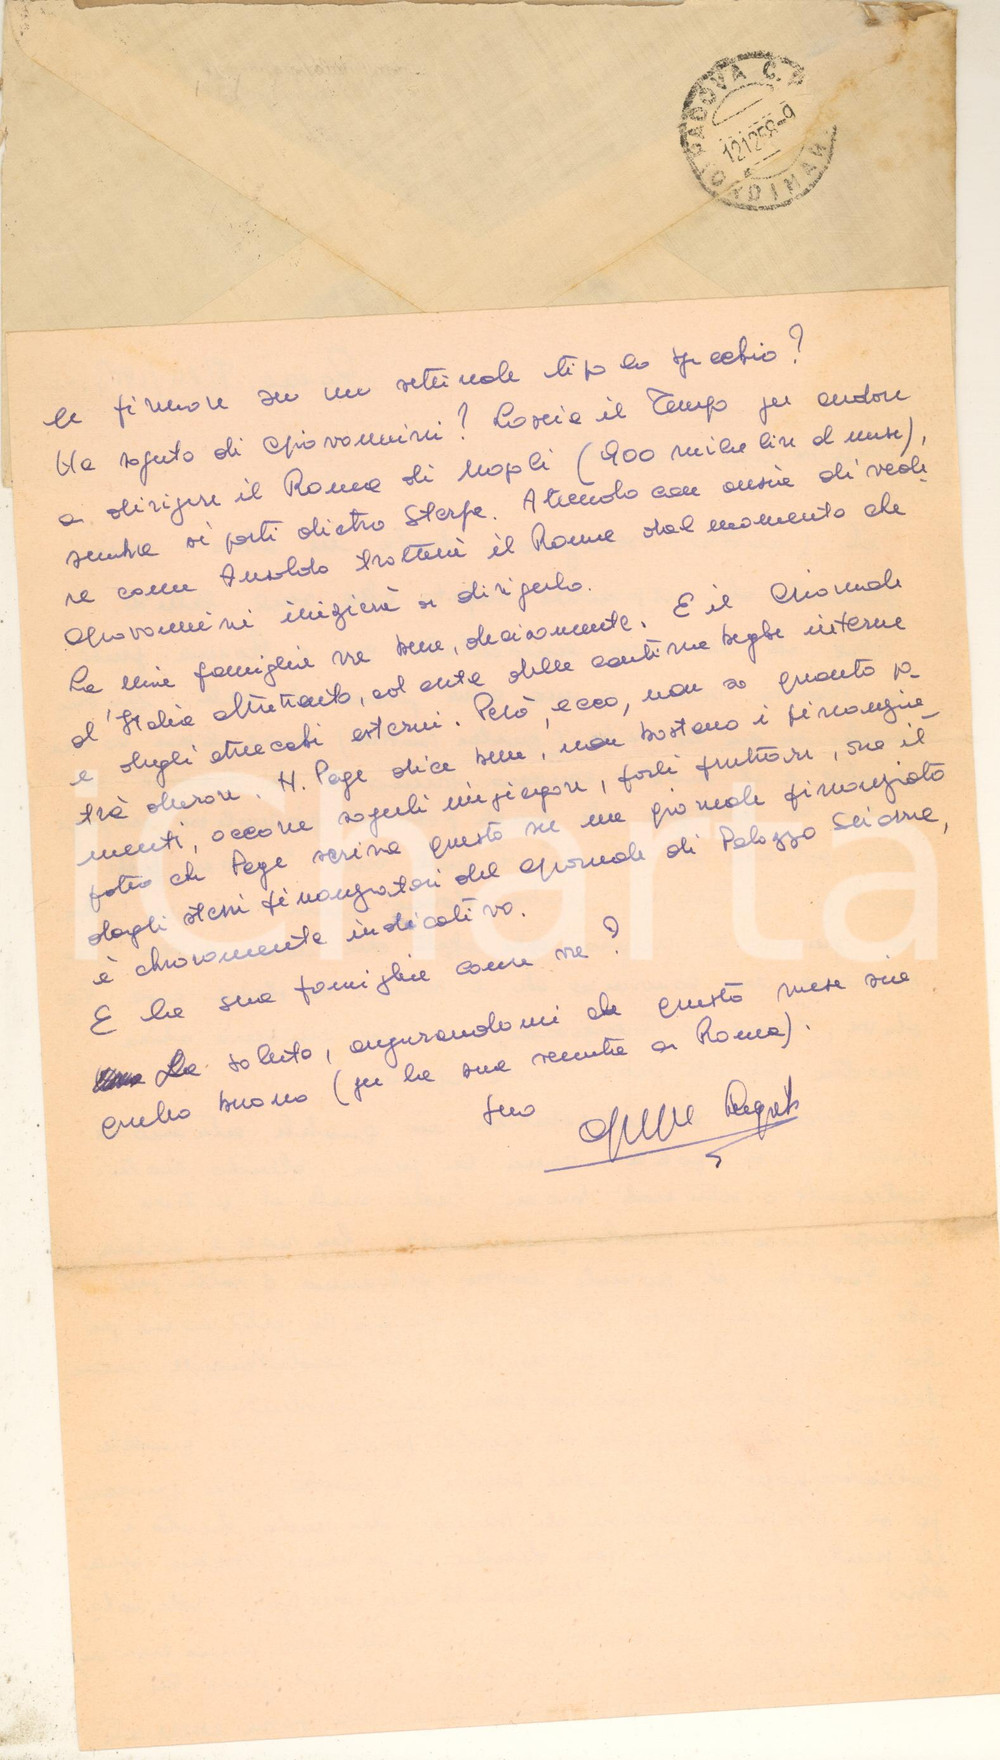 PADOVA C.P.
12.12.58-9
ORDINAR
le firmare su un settimanale tipo lo specchio?
Ha saputo di Giovannini? Lascia il Tempo per andare
a dirigere il Roma di Napoli (900 mila lire al mese),
sembra si porti dietro Sterpa. Attendo con ansia di vede-
re come Ansaldo tratterà il Roma dal momento che
Giovannini inizierà a dirigerlo.
La mia famiglia va bene, decisamente. E il Giornale
d'Italia altrettanto, ad onta delle continue beghe interne
e degli attacchi esterni. Però, ecco, non so quanto po-
trà durare. N. Page dice bene, non bastano i finanzia-
menti, occorre saperli impiegare, farli fruttare, ma il
fatto che Page scriva questo su un giornale finanziato
dagli stessi finanziatori del Giornale di Palazzo Sciarra,
è chiaramente indicativo.
E la sua famiglia come va?
La saluto, augurandomi che questo mese sia
quello buono (per la sua venuta a Roma).
Suo
iCharta